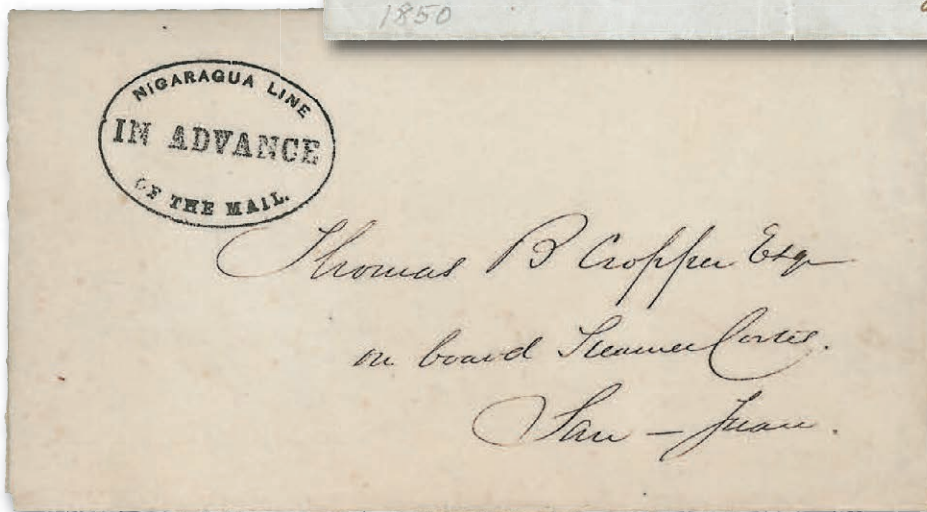 1850
NICARAGUA LINE
IN ADVANCE
OF THE MAIL.
Thomas B Cropper Esqr
on board Steamer Cortes.
San – Juan.